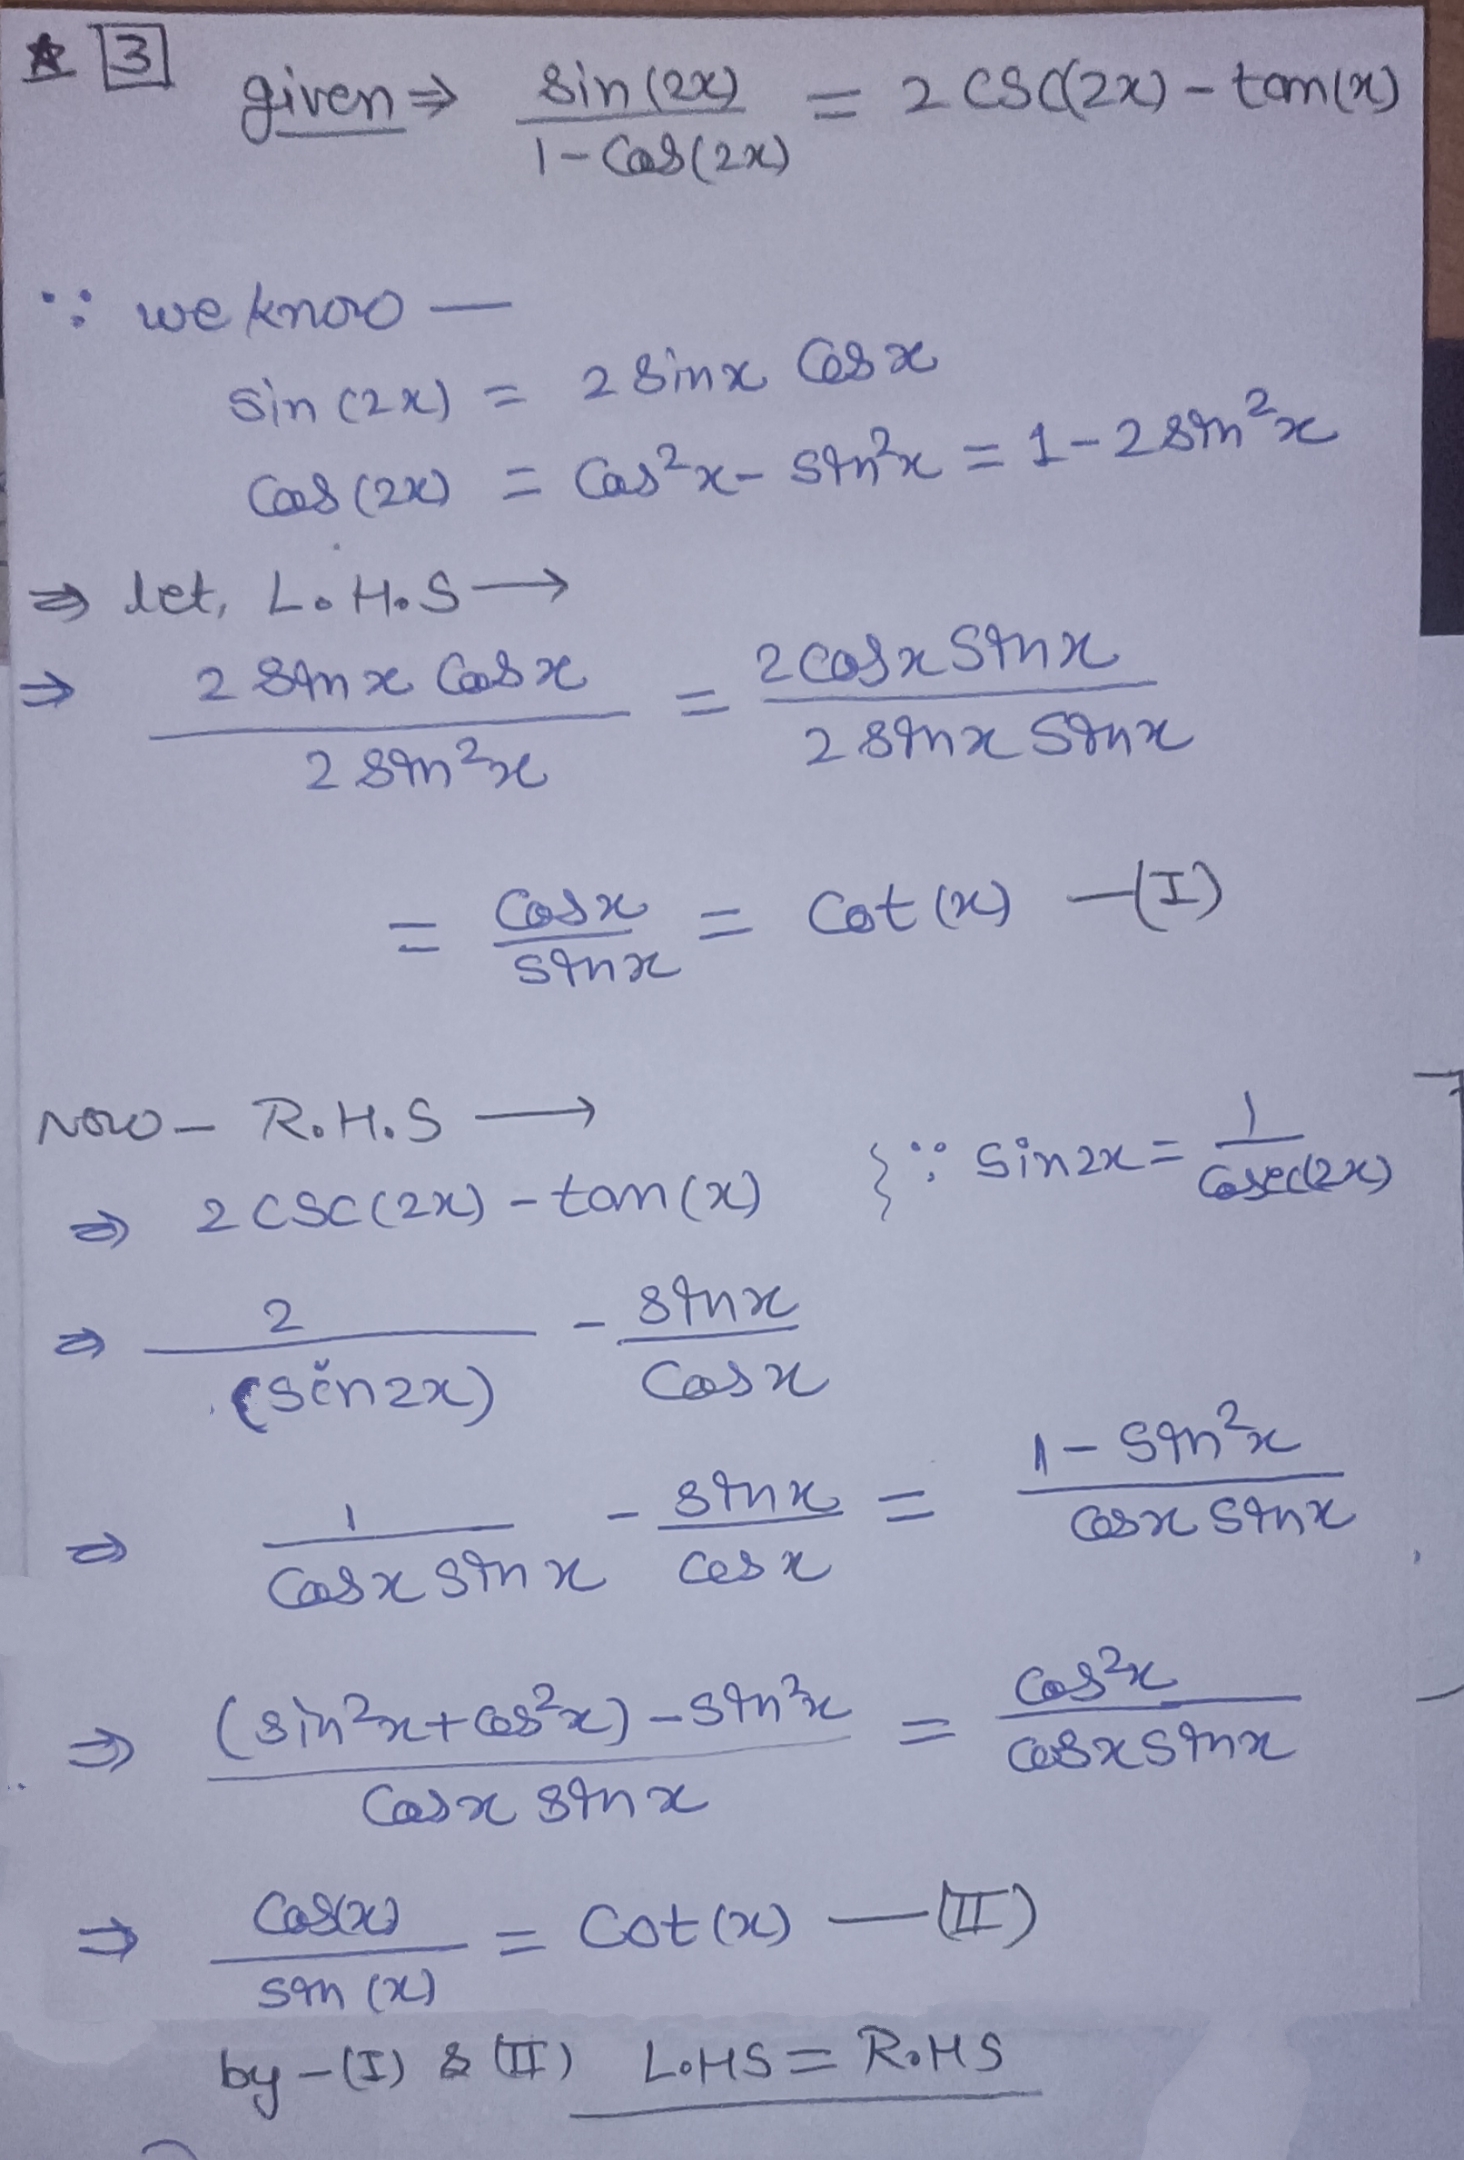 ☆ 3 given ⇒ sin(2x) / 1-Cos(2x) = 2 csc(2x) - tan(x)
∵ we know —
sin(2x) = 2 sinx Cosx
Cos(2x) = Cos²x - sin²x = 1 - 2 sin²x
⇒ let, L.H.S →
⇒ 2 sinx Cosx / 2 sin²x = 2 cosx sinx / 2 sinx sinx
= Cosx / sinx = Cot(x) —(I)
Now — R.H.S →
⇒ 2 CSC(2x) - tan(x) {∵ sin2x = 1 / Cosec(2x)
⇒ 2 / (sin2x) - sinx / Cosx
⇒ 1 / Cosx sinx - sinx / cosx = 1 - sin²x / Cosx sinx
⇒ (sin²x + cos²x) - sin²x / Cosx sinx = Cos²x / cosx sinx
⇒ Cos(x) / sin(x) = Cot(x) —(II)
by - (I) & (II) L.HS = R.HS